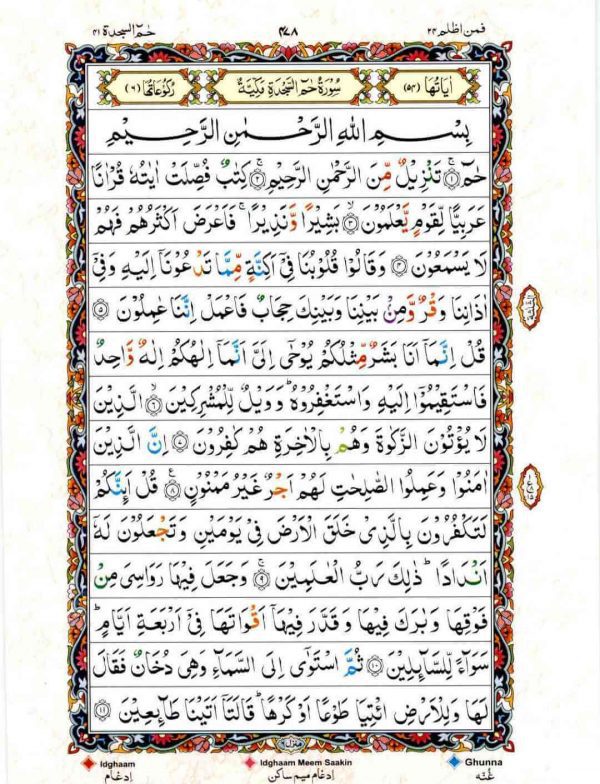 حٰمٓ السجدة ٤١
٤٧٨
فمن اظلم ٢٤
اٰيَاتُهَا (٥٤)
سُوْرَةُ حٰمٓ السَّجْدَةِ مَكِّيَّةٌ
رُكُوْعَاتُهَا (٦)
بِسْمِ اللّٰهِ الرَّحْمٰنِ الرَّحِيْمِ
حٰمٓ ۚ‏﴿١﴾ تَنْزِيْلٌ مِّنَ الرَّحْمٰنِ الرَّحِيْمِ ۚ‏﴿٢﴾ كِتٰبٌ فُصِّلَتْ اٰيٰتُهٗ قُرْاٰنًا
عَرَبِيًّا لِّقَوْمٍ يَّعْلَمُوْنَ ۙ‏﴿٣﴾ بَشِيْرًا وَّنَذِيْرًا ۚ فَاَعْرَضَ اَكْثَرُهُمْ فَهُمْ
لَا يَسْمَعُوْنَ ﴿٤﴾ وَقَالُوْا قُلُوْبُنَا فِىْٓ اَكِنَّةٍ مِّمَّا تَدْعُوْنَاۤ اِلَيْهِ وَفِىْٓ
اٰذَانِنَا وَقْرٌ وَّمِنْۢ بَيْنِنَا وَبَيْنِكَ حِجَابٌ فَاعْمَلْ اِنَّنَا عٰمِلُوْنَ ﴿٥﴾
قُلْ اِنَّمَاۤ اَنَا بَشَرٌ مِّثْلُكُمْ يُوْحٰٓى اِلَىَّ اَنَّمَاۤ اِلٰهُكُمْ اِلٰهٌ وَّاحِدٌ
فَاسْتَقِيْمُوْۤا اِلَيْهِ وَاسْتَغْفِرُوْهُ ؕ وَوَيْلٌ لِّلْمُشْرِكِيْنَ ۙ‏﴿٦﴾ الَّذِيْنَ
لَا يُؤْتُوْنَ الزَّكٰوةَ وَهُمْ بِالْاٰخِرَةِ هُمْ كٰفِرُوْنَ ﴿٧﴾ اِنَّ الَّذِيْنَ
اٰمَنُوْا وَعَمِلُوا الصّٰلِحٰتِ لَهُمْ اَجْرٌ غَيْرُ مَمْنُوْنٍ ﴿٨﴾ قُلْ اَئِنَّكُمْ
لَتَكْفُرُوْنَ بِالَّذِىْ خَلَقَ الْاَرْضَ فِىْ يَوْمَيْنِ وَتَجْعَلُوْنَ لَهٗۤ
اَنْدَادًا ؕ ذٰلِكَ رَبُّ الْعٰلَمِيْنَ ۚ‏﴿٩﴾ وَجَعَلَ فِيْهَا رَوَاسِىَ مِنْ
فَوْقِهَا وَبٰرَكَ فِيْهَا وَقَدَّرَ فِيْهَاۤ اَقْوَاتَهَا فِىْٓ اَرْبَعَةِ اَيَّامٍ ؕ
سَوَآءً لِّلسَّآئِلِيْنَ ﴿١٠﴾ ثُمَّ اسْتَوٰٓى اِلَى السَّمَآءِ وَهِىَ دُخَانٌ فَقَالَ
لَهَا وَلِلْاَرْضِ ائْتِيَا طَوْعًا اَوْ كَرْهًا ؕ قَالَتَاۤ اَتَيْنَا طَآئِعِيْنَ ﴿١١﴾
Idghaam
ادغام
Idghaam Meem Saakin
ادغام میم ساکن
Ghunna
غنّه